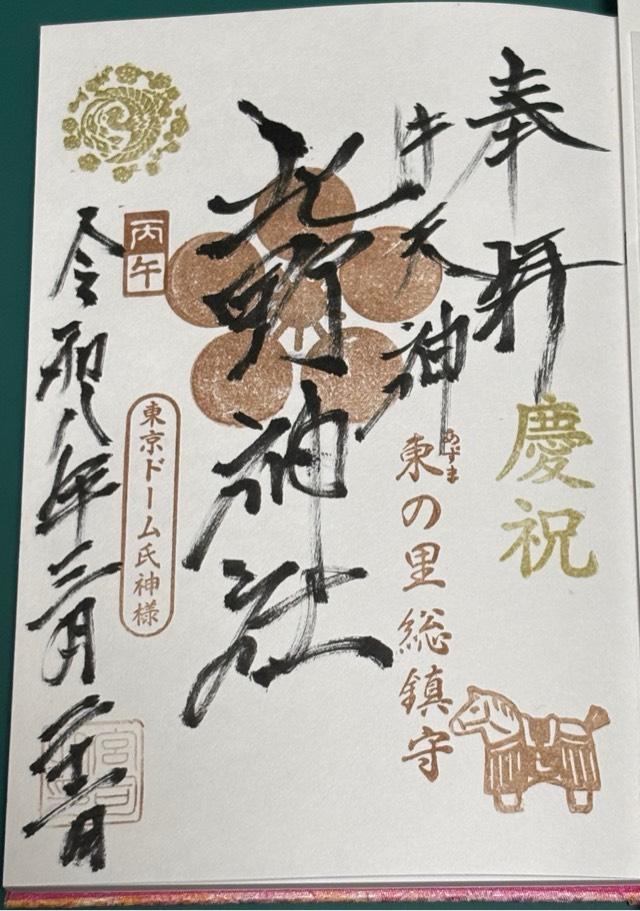 奉拝
慶祝
牛天神
東の里総鎮守
あずま
北野神社
丙午
東京ドーム氏神様
令和八年三月二十二日